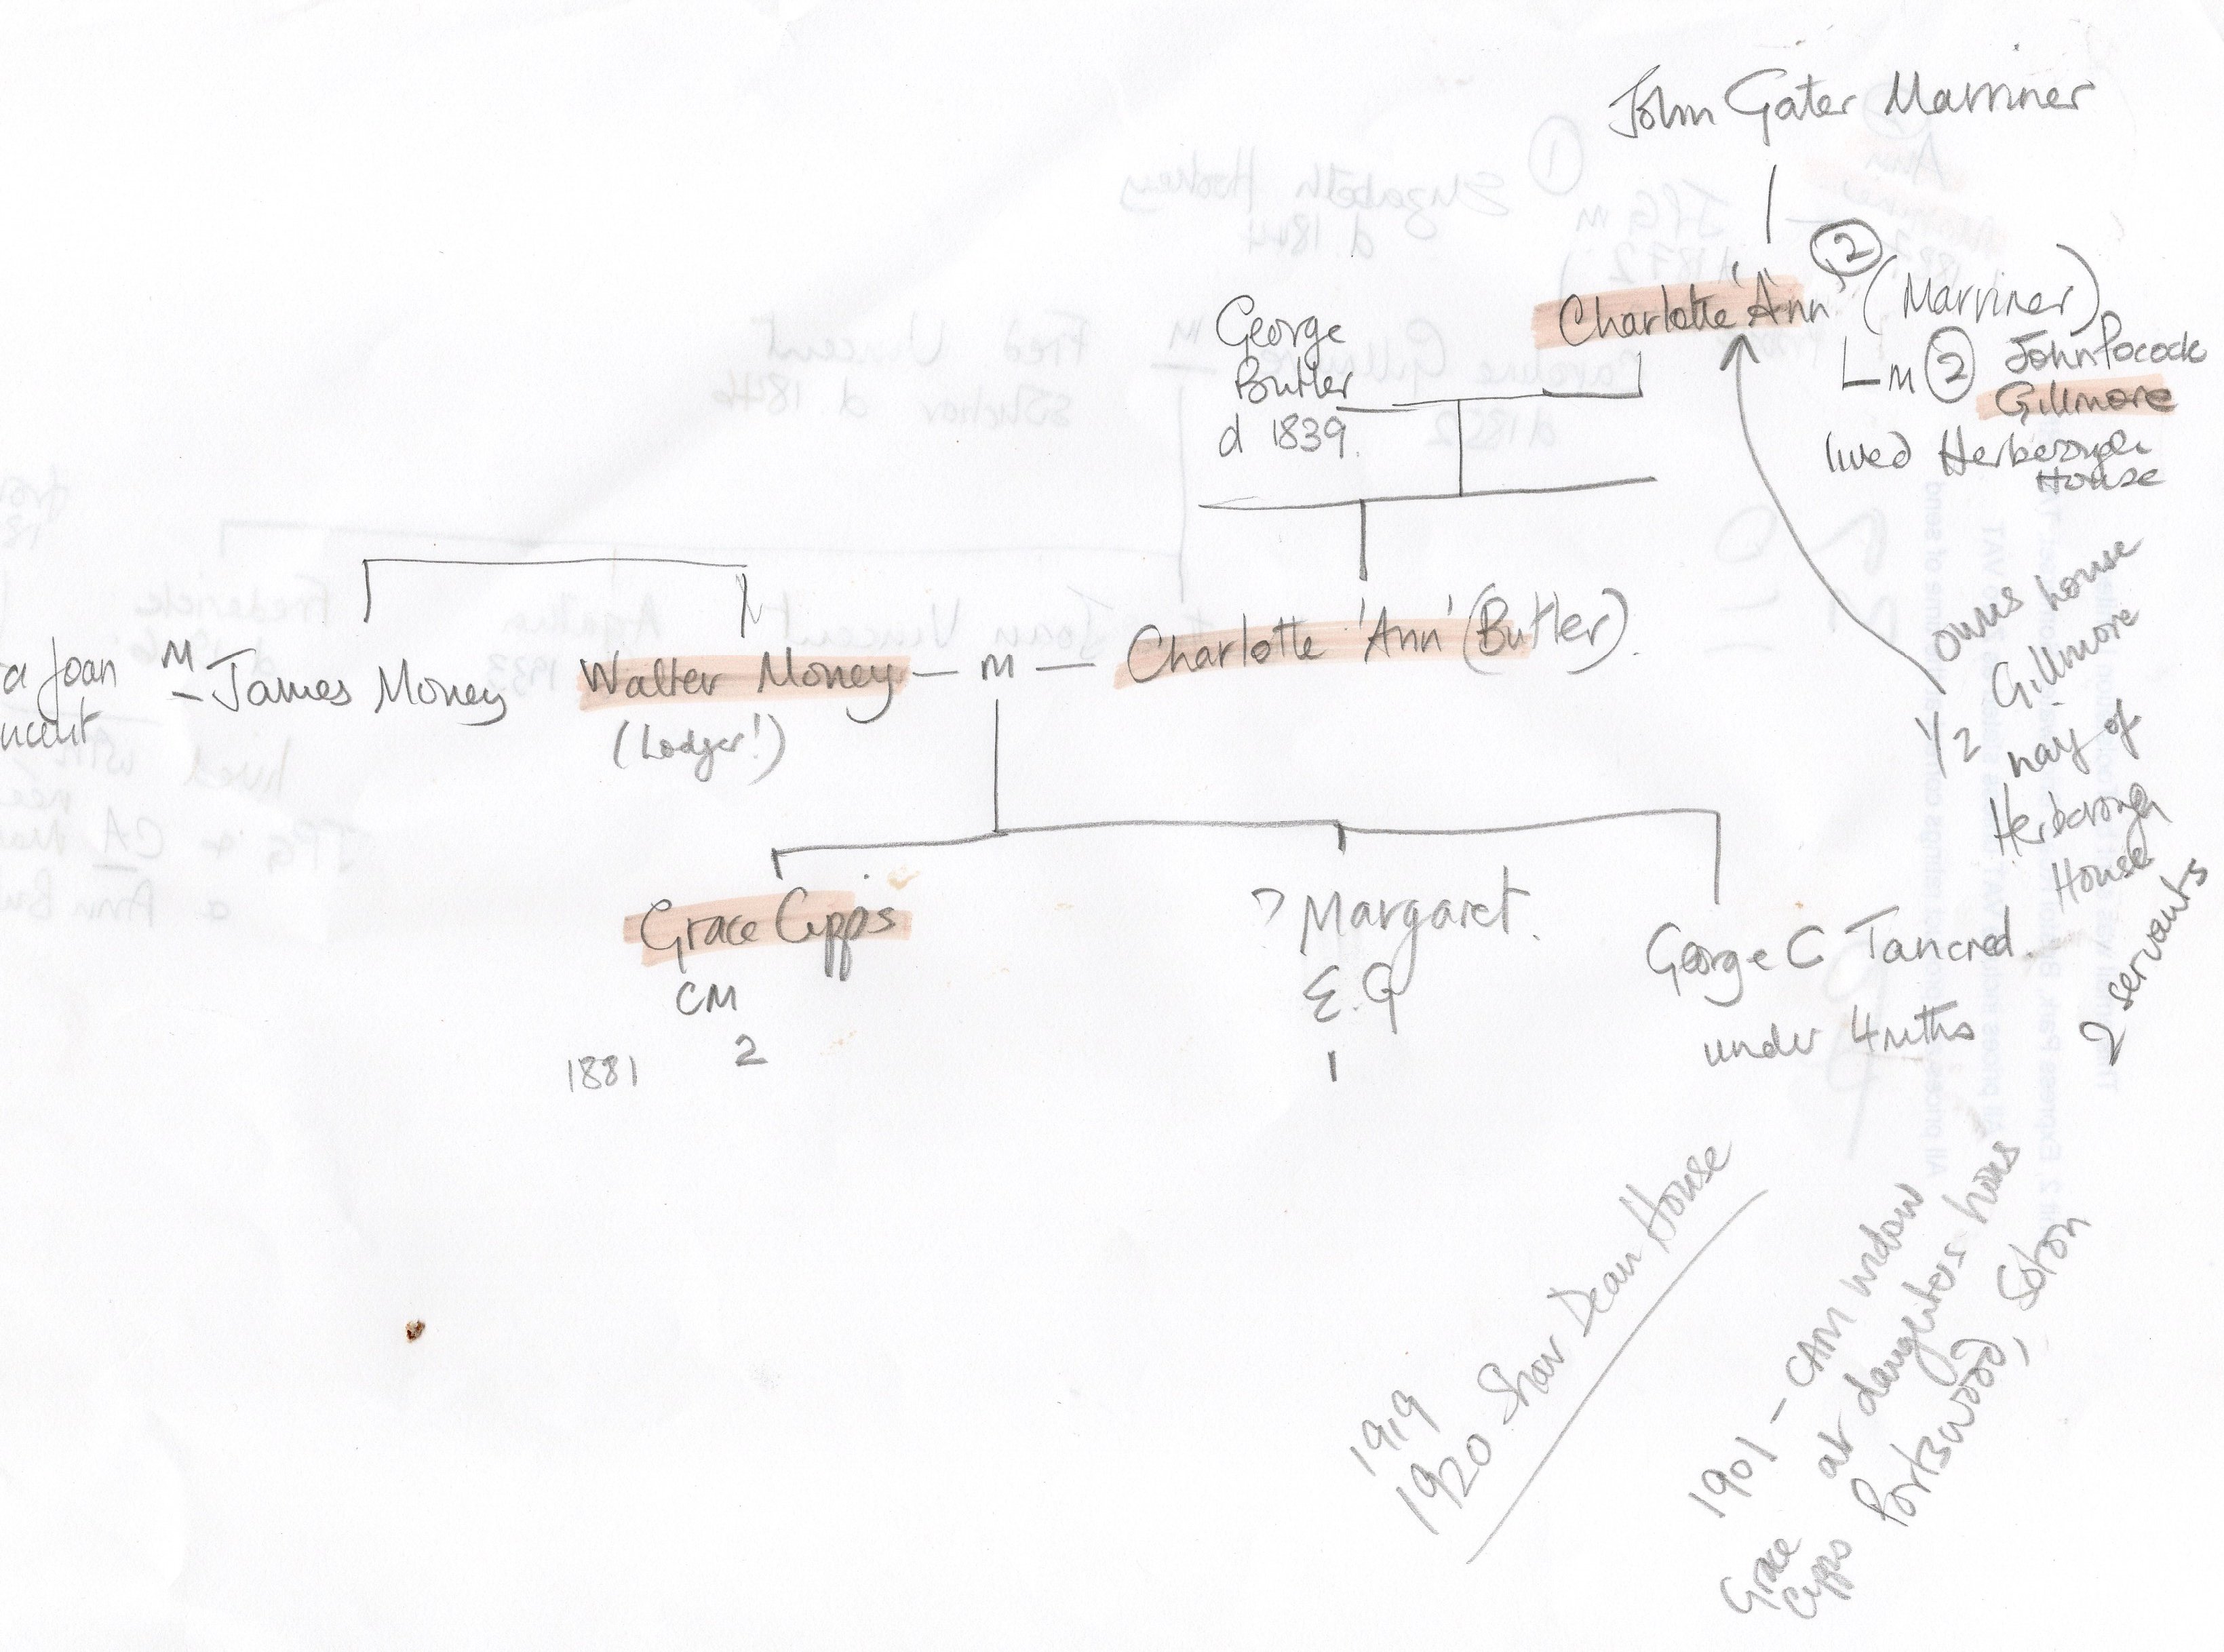 John Gater Marriner
Charlotte 'Ann' ② (Marriner)
m ② John Pocock
Gillmore
lived Herborough
House
George
Butler
d 1839.
a Joan
M James Money
Walter Money — m — Charlotte 'Ann' (Butler).
(Lodger!)
owns house
Gillmore
1/2 way of
Herborough
House
2 servants
Grace Cypps
CM
2
1881
? Margaret.
E.G
1
George C Tancred.
under 4mths
1919
1920 Shaw Dean House
1901 – CAM widow
at daughters house
Portswood, Soton
Grace
Cypps